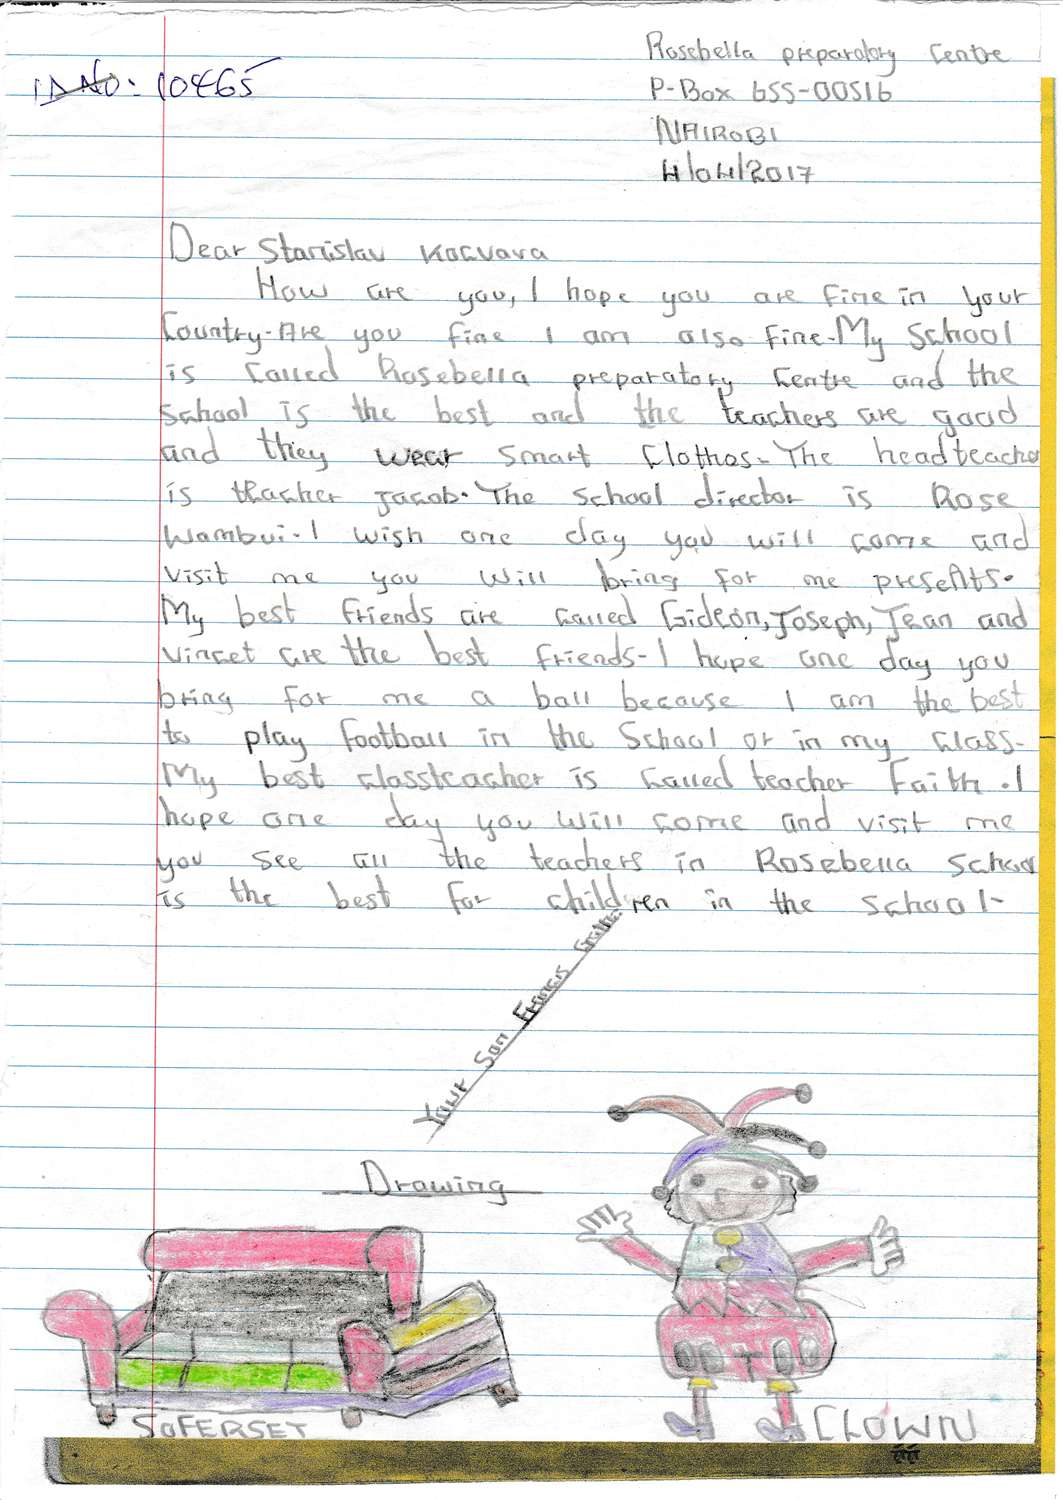 ID NO: 10465
Rosebella preparatory Centre
P-Box 655-00516
NAIROBI
4/04/2017
Dear Stanislav Kocvara
How are you, I hope you are fine in your
Country-Are you fine I am also fine-My School
is Called Rosebella preparatory Centre and the
School is the best and the teachers are good
and they wear smart Clothes-The headteacher
is teacher Jacob. The School director is Rose
Wambui-I wish one day you will come and
visit me you will bring for me presents.
My best friends are Called Gideon, Joseph, Jean and
vincet are the best friends-I hope one day you
bring for me a ball because I am the best
to play football in the School or in my Class-
My best classteacher is Called teacher Faith. I
hope one day you will come and visit me
you see all the teachers in Rosebella School
is the best for children in the School-
Your Son Francis
Drawing
SOFERSET
CLOWN